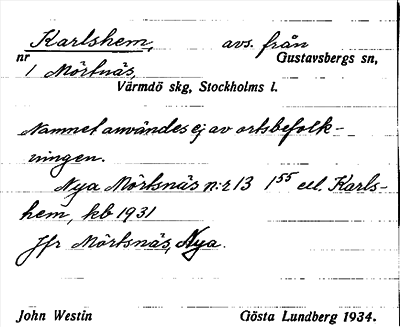 Karlshem, avs. från
nr Gustavsbergs sn,
1 Mörtnäs,
Värmdö skg, Stockholms l.
Namnet användes ej av ortsbefolk-
ningen.
Nya Mörtsnäs n:r 13 1⁵⁵ ell. Karls-
hem, kb 1931
Jfr Mörtsnäs, Nya.
John Westin Gösta Lundberg 1934.